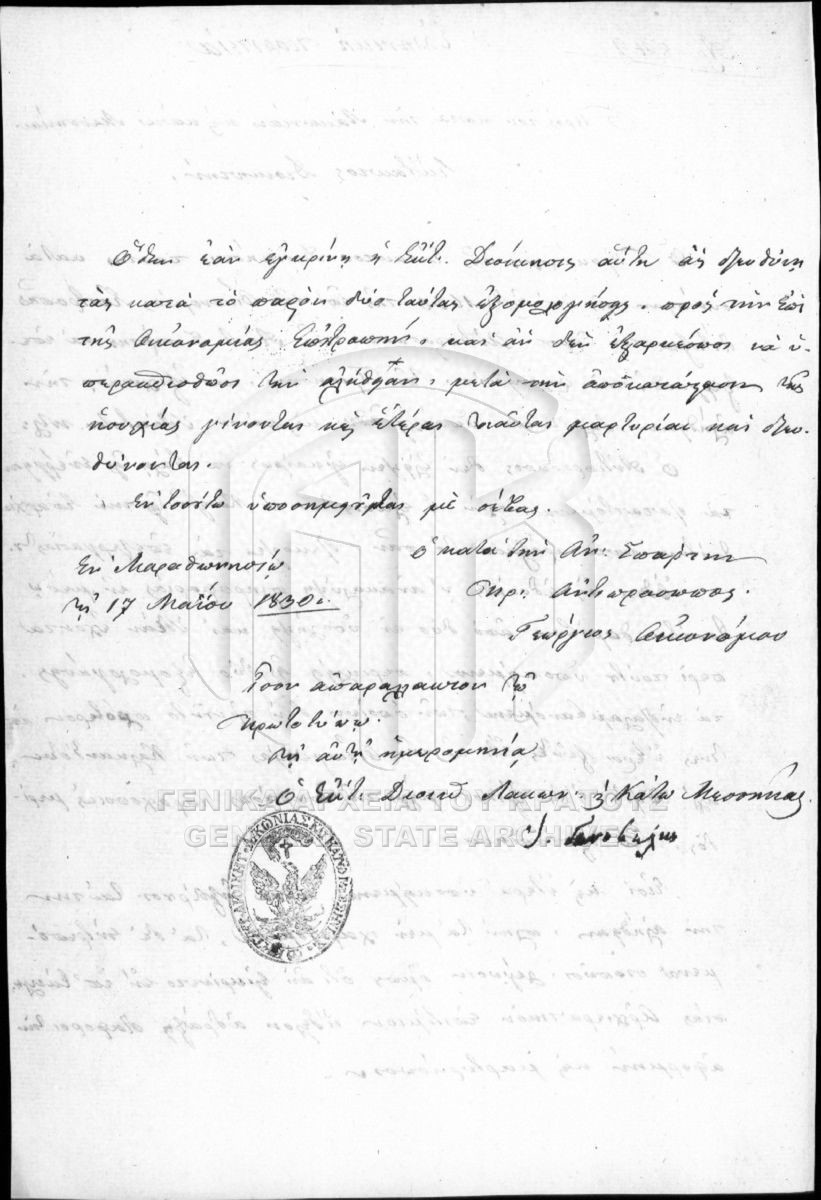 Ὅθεν ἐὰν ἐγκρίνῃ ἡ Ἐκτ. Διοίκησις αὕτη ἂς διευθύνῃ
τὰς κατὰ τὸ παρὸν δύο ταύτας ἐξομολογήσεις. πρὸς τὴν ἐπὶ
τῆς Οἰκονομίας Ἐπιτροπὴν, καὶ ἂν δὲν ἐξαρκέσωσι νὰ ὑ-
περασπισθῶσι τὴν ἀλήθειαν, μετὰ τὴν ἀποκατάστασιν τῆς
ἡσυχίας γίνονται καὶ ἑτέρας τοιαύτας μαρτυρίαι καὶ διευ-
θύνονται.
Ἐν τοσούτῳ ὑποσημειοῦμαι μὲ σέβας.
Ἐν Μαραθωνησίῳ
τῇ 17 Μαΐου 1830.
Ὁ κατὰ τὴν Ἀν: Σπάρτην
Ἀντιπρόσωπος.
Γεώργιος Οἰκονόμου
Ἴσον ἀπαράλλακτον τῷ
πρωτοτύπῳ.
τῇ αὐτῇ ἡμερομηνίᾳ
Ὁ Ἐκτ. Διοικ. Λακων: καὶ Κάτω Μεσσηνίας
Ι. Γενοβέλης
ΓΕΝΙΚΑ ΑΡΧΕΙΑ ΤΟΥ ΚΡΑΤΟΥΣ
GENERAL STATE ARCHIVES